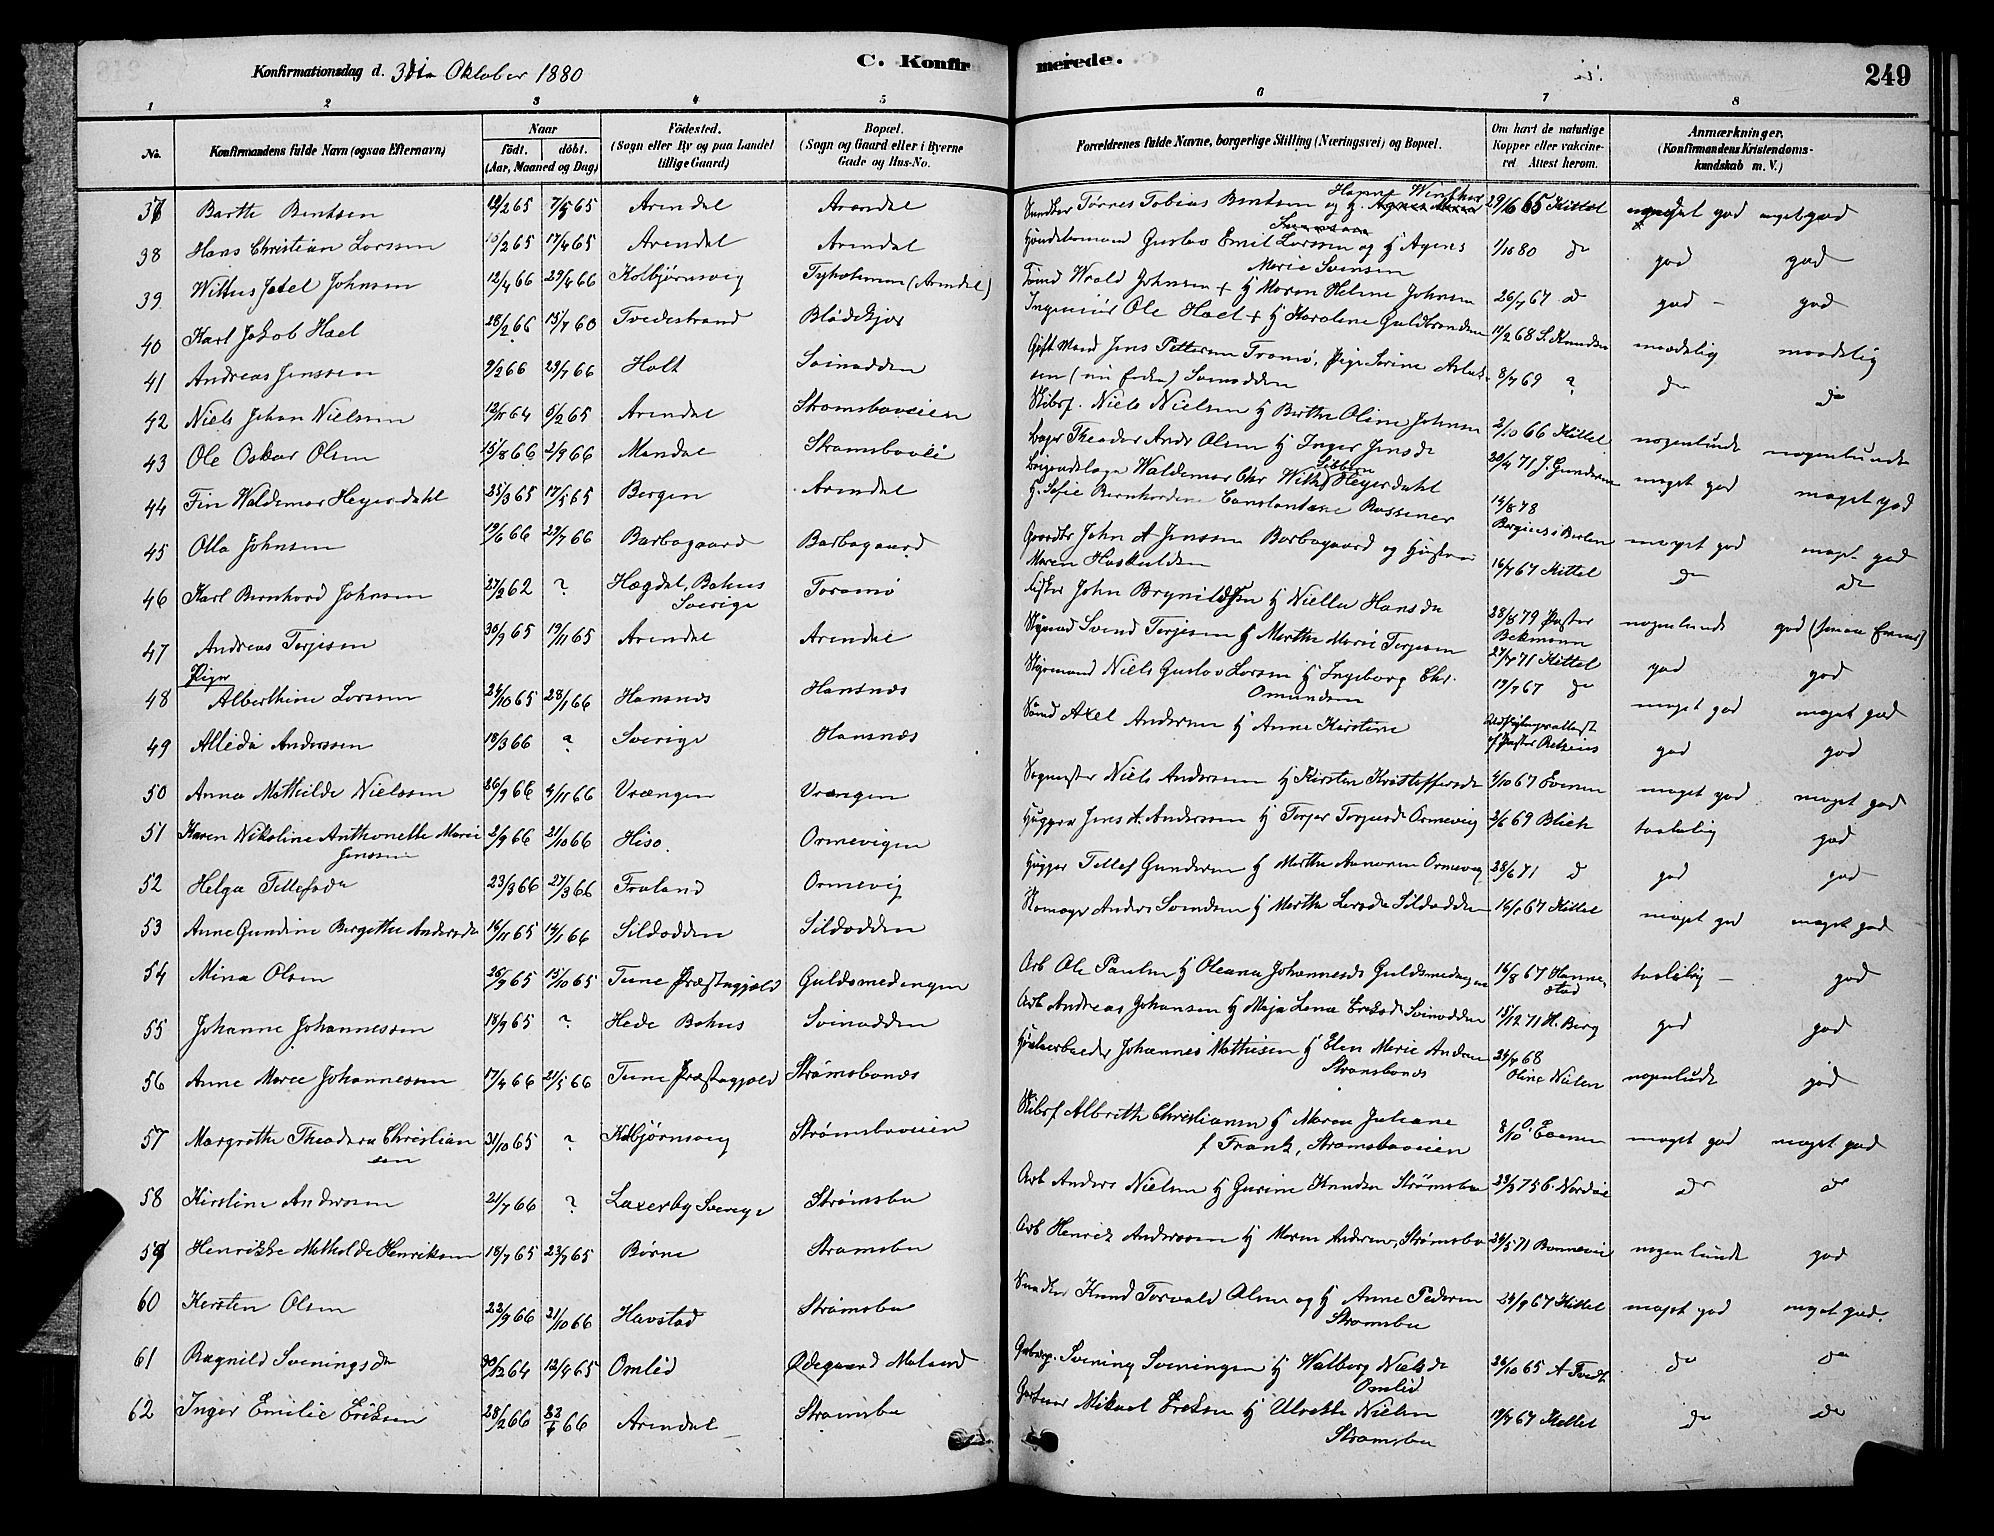 Konfirmationsdag d. 3die Oktober 1880
C. Konfirmerede.
249
1 2 3 4 5 6 7 8
No. Konfirmandens fulde Navn (ogsaa Efternavn) Naar født. døbt. (Aar, Maaned og Dag) Fødested. (Sogn eller By og paa Landet tillige Gaard) Bopæl. (Sogn og Gaard eller i Byerne Gade og Hus-No. Forældrenes fulde Navne, borgerlige Stilling (Næringsvei) og Bopæl. Om havt de naturlige Kopper eller vakcineret. Attest herom. Anmærkninger. (Konfirmandens Kristendomskundskab m. V.)
37 Barthe Bentsen 19/2 65 7/5 65 Arendal Arendal Tørres Tobias Bentsen og H. Hanne Winther 29/6 65 Kittel meget god meget god
38 Hans Christian Larssen 15/2 65 17/4 65 Arendal Arendal Handelsmand Gustav Emil Larssen og H Agnes Marie Svensen 1/10 80 do god god
39 Johnsen 12/4 66 29/4 66 Kolbjørnsvig Tyholmen (Arendal) Tømd Johnsen + H Maren Helene Johnsen 26/7 67 d god - god
40 Karl Jakob Hael 28/2 66 15/7 60 Tvedestrand Blødekjær Ingeniør Ole Hael + H Karoline Guldbrandsen 11/2 68 S. Knudsen maadelig maadelig
41 Andreas Jenssen 9/2 66 29/7 66 Holt Svinodden Gift Mand Jens Pettersen Tromø, Pige Sorine Aslaksen (nu ) Svinodden 8/7 69 ? do do
42 Niels Johan Nielsen 12/11 64 5/2 65 Arendal Strømsboveien Skibsf. Niels Nielsen H Berthe Oline Johnsen 2/10 66 Kittel nogenlunde nogenlunde
43 Ole Oskar Olsen 15/8 66 2/9 66 Mandal Strømsboveie Bager Theodor Andr Olsen H Inger Jensdr 20/4 71 J. Gundersen meget god meget god
44 Fin Waldemar Heyerdahl 25/3 65 17/5 65 Bergen Arendal Brigadelæge Waldemar Chr Wilh Sibbern Heyerdahl
H. Sofie Bernhardine Constantine Rossener 14/8 78
45 Olla Johnsen 19/6 66 29/7 66 Barbogaard Barbogaard Gaardbr John A Jenssen Barbogaard og Hustru
Maren Haskuldsen 16/7 67 Kittel do do
46 Karl Bernhard Johnsen 27/2 62 ? Hægdal, Bahus Sverige Tromø Fisker John Brynildsen H Niella Hansdr 28/8 79 Pastor Bekmann nogenlunde god
47 Andreas Terjesen 30/9 65 19/11 65 Arendal Arendal Styrmd Svend Terjesen H Marthe Marie Terjesen 27/7 71 Kittel god god
Piger
48 Alberthine Larssen 24/10 65 28/1 66 Hansnæs Hansnæs Styrmand Niels Gustav Larsen H Ingeborg Chr. Omundsen 19/7 67 do meget god meget god
49 Alleda Anderssen 18/3 66 ? Sverige Hansnæs Sømd Axel Andersen H Anne Kirstine god god
50 Anna Mathilde Nielssen 26/9 66 4/11 66 Vrængen Vrængen Niels Anderssen H Kirsten Kristoffersdr 4/10 67 Evensen meget god meget god
51 Karen Nikoline Anthonette Marie Jenssen 2/9 66 21/10 66 Hisø. Ormevigen Jens A. Anderssen H Torjer Torjusdr Ormevig 2/6 69 Blich taalelig god
52 Helga Tellefsdr 23/3 66 27/3 66 Froland Ormevig Hugger Tellef Gundersen H Marthe Ormevig 28/6 71 d god god
53 Anne Gundine Bergithe Andersdr 14/11 65 14/1 66 Sildodden Sildodden Skomager Anders Svendsen H Marthe Larsdr Sildodden 16/1 67 Kittel meget god meget god
54 Mina Olsen 26/9 65 15/10 65 Tune Præstegjeld Guldsmedengen Arb Ole Paulsen H Oleana Johannesdr Guldsmedengen 16/8 67 Hannestad taalelig - god
55 Johanne Johannessen 18/9 65 ? Hede Bahus Svinodden Arb Andreas Johansen H Maja Lena Eriksdr Svinodden 15/12 71 H. Berg god god
56 Anne Marie Johannessen 17/4 66 21/5 66 Tune Præstegjeld Strømsbonæs Johannes Mathisen H Elen Marie Andersen Strømsbonæs 24/7 68 Oline Nielsen nogenlunde god
57 Margrethe Theodora Christiansen 31/10 65 ? Kolbjørnsvig Strømsboveien Skibsf Albreth Christiansen H Maren Juliane
f Frank, Strømsboveien Evensen meget god meget god
58 Kirstine Andersen 21/7 66 ? Laxerby Sverige Strømsbu Arb Anders Nielsen H Gurine Knudsen Strømsbu 23/3 75 do do
59 Henrikke Mathilde Henriksen 18/7 65 23/7 65 Børne Strømsbu Arb Henrik Anderssen H Maren Andersen, Strømsbu 24/5 71 Bonnevie nogenlunde god
60 Kersten Olsen 22/9 66 21/10 66 Havstad Strømsbu Knud Torvald Olsen og H Anne Pedersen Strømsbu 24/9 67 Kittel meget god meget god.
61 Ragnild Sveningsdr 30/12 64 12/4 65 Omlid Ødegaard Moland Svening Sveningsen H Walborg Nielsdr Omlid 26/10 65 A Tvedt do do
62 Inger Emilie Eriksen 28/2 66 22/4 66 Arendal Strømsbu Mikael Eriksen H Ulrette Nielsen Strømsbu 19/7 67 Kittel do do